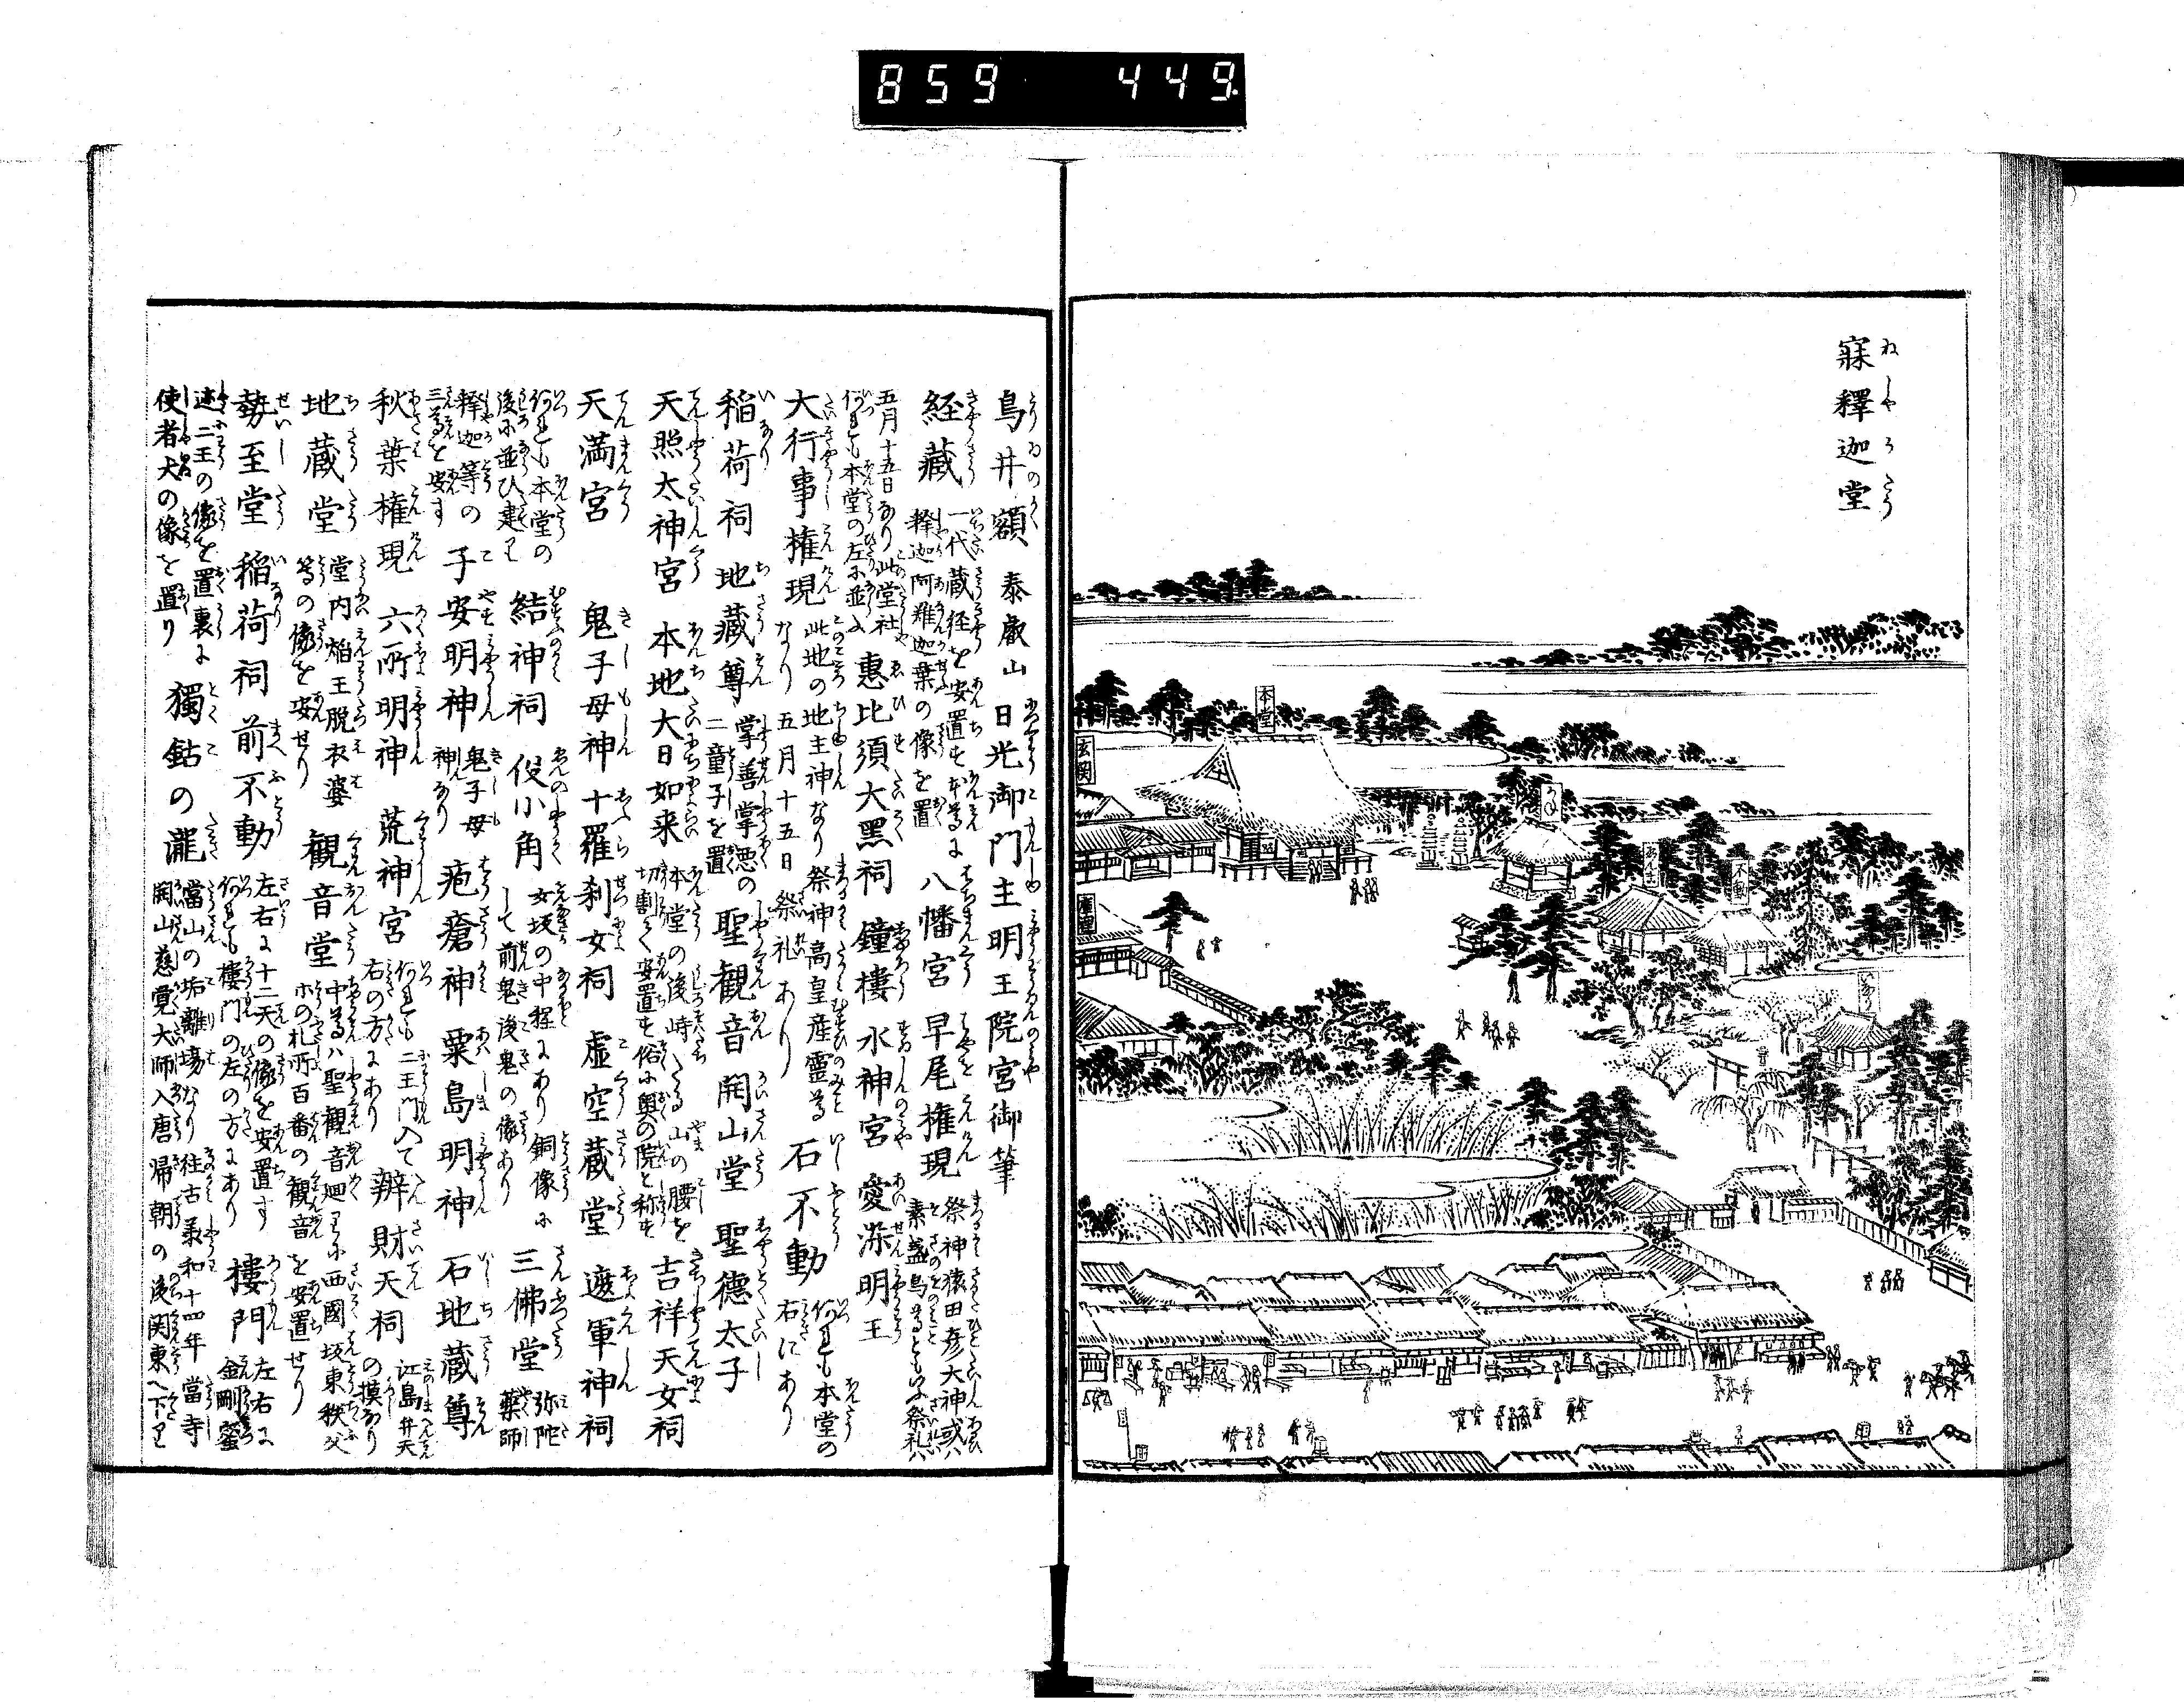 859 449
寐釋迦堂
本堂
玄関
庫裡
不動
いなり
鳥井額 泰叡山 日光御門主明王院宮御筆
経藏 一代蔵経を安置を本尊に
釋迦阿難迦葉の像を置
八幡宮 早尾権現 祭神猿田彦大神或ハ
素盞烏尊ともいふ祭礼ハ
五月十五日なり此堂社
何れも本堂の左に並ふ
惠比須大黒祠 鐘樓 水神宮 愛染明王
大行事権現 此地の地主神なり 祭神高皇産靈尊
なり 五月十五日 祭礼あり
石不動 何れも本堂の
右にあり
稲荷祠 地藏尊 掌善掌悪の
二童子を置
聖観音 開山堂 聖德太子
天照太神宮 本地大日如来 本堂の後峙たる山の腰を
切割て安置を俗に奥の院と称を
吉祥天女祠
天満宮 鬼子母神 十羅刹女祠 虚空蔵堂 遊軍神祠
何れも本堂の
後に並ひ建り
結神祠 役小角 女坂の中程にあり 銅像に
して前鬼後鬼の像あり
三佛堂 弥陀
薬師
釋迦等の
三尊を安す
子安明神 鬼子母
神なり
疱瘡神 粟島明神 石地蔵尊
秋葉権現 六所明神 荒神宮 何れも二王門入て
右の方にあり
辨財天祠 江島弁天
の摸なり
地蔵堂 堂内焔王脱衣婆
等の像を安せり
観音堂 中尊ハ聖観音廻りに西國坂東秩父
ホの札所百番の観音を安置せり
勢至堂 稲荷祠 前不動 左右に十二天の像を安置す
何れも樓門の左の方にあり
樓門 左右に
金剛蜜
迹二王の像を置裏に
使者犬の像を置り
獨鈷の瀧 當山の垢離場なり 往古承和十四年當寺
開山慈覚大師入唐帰朝の後関東へ下り